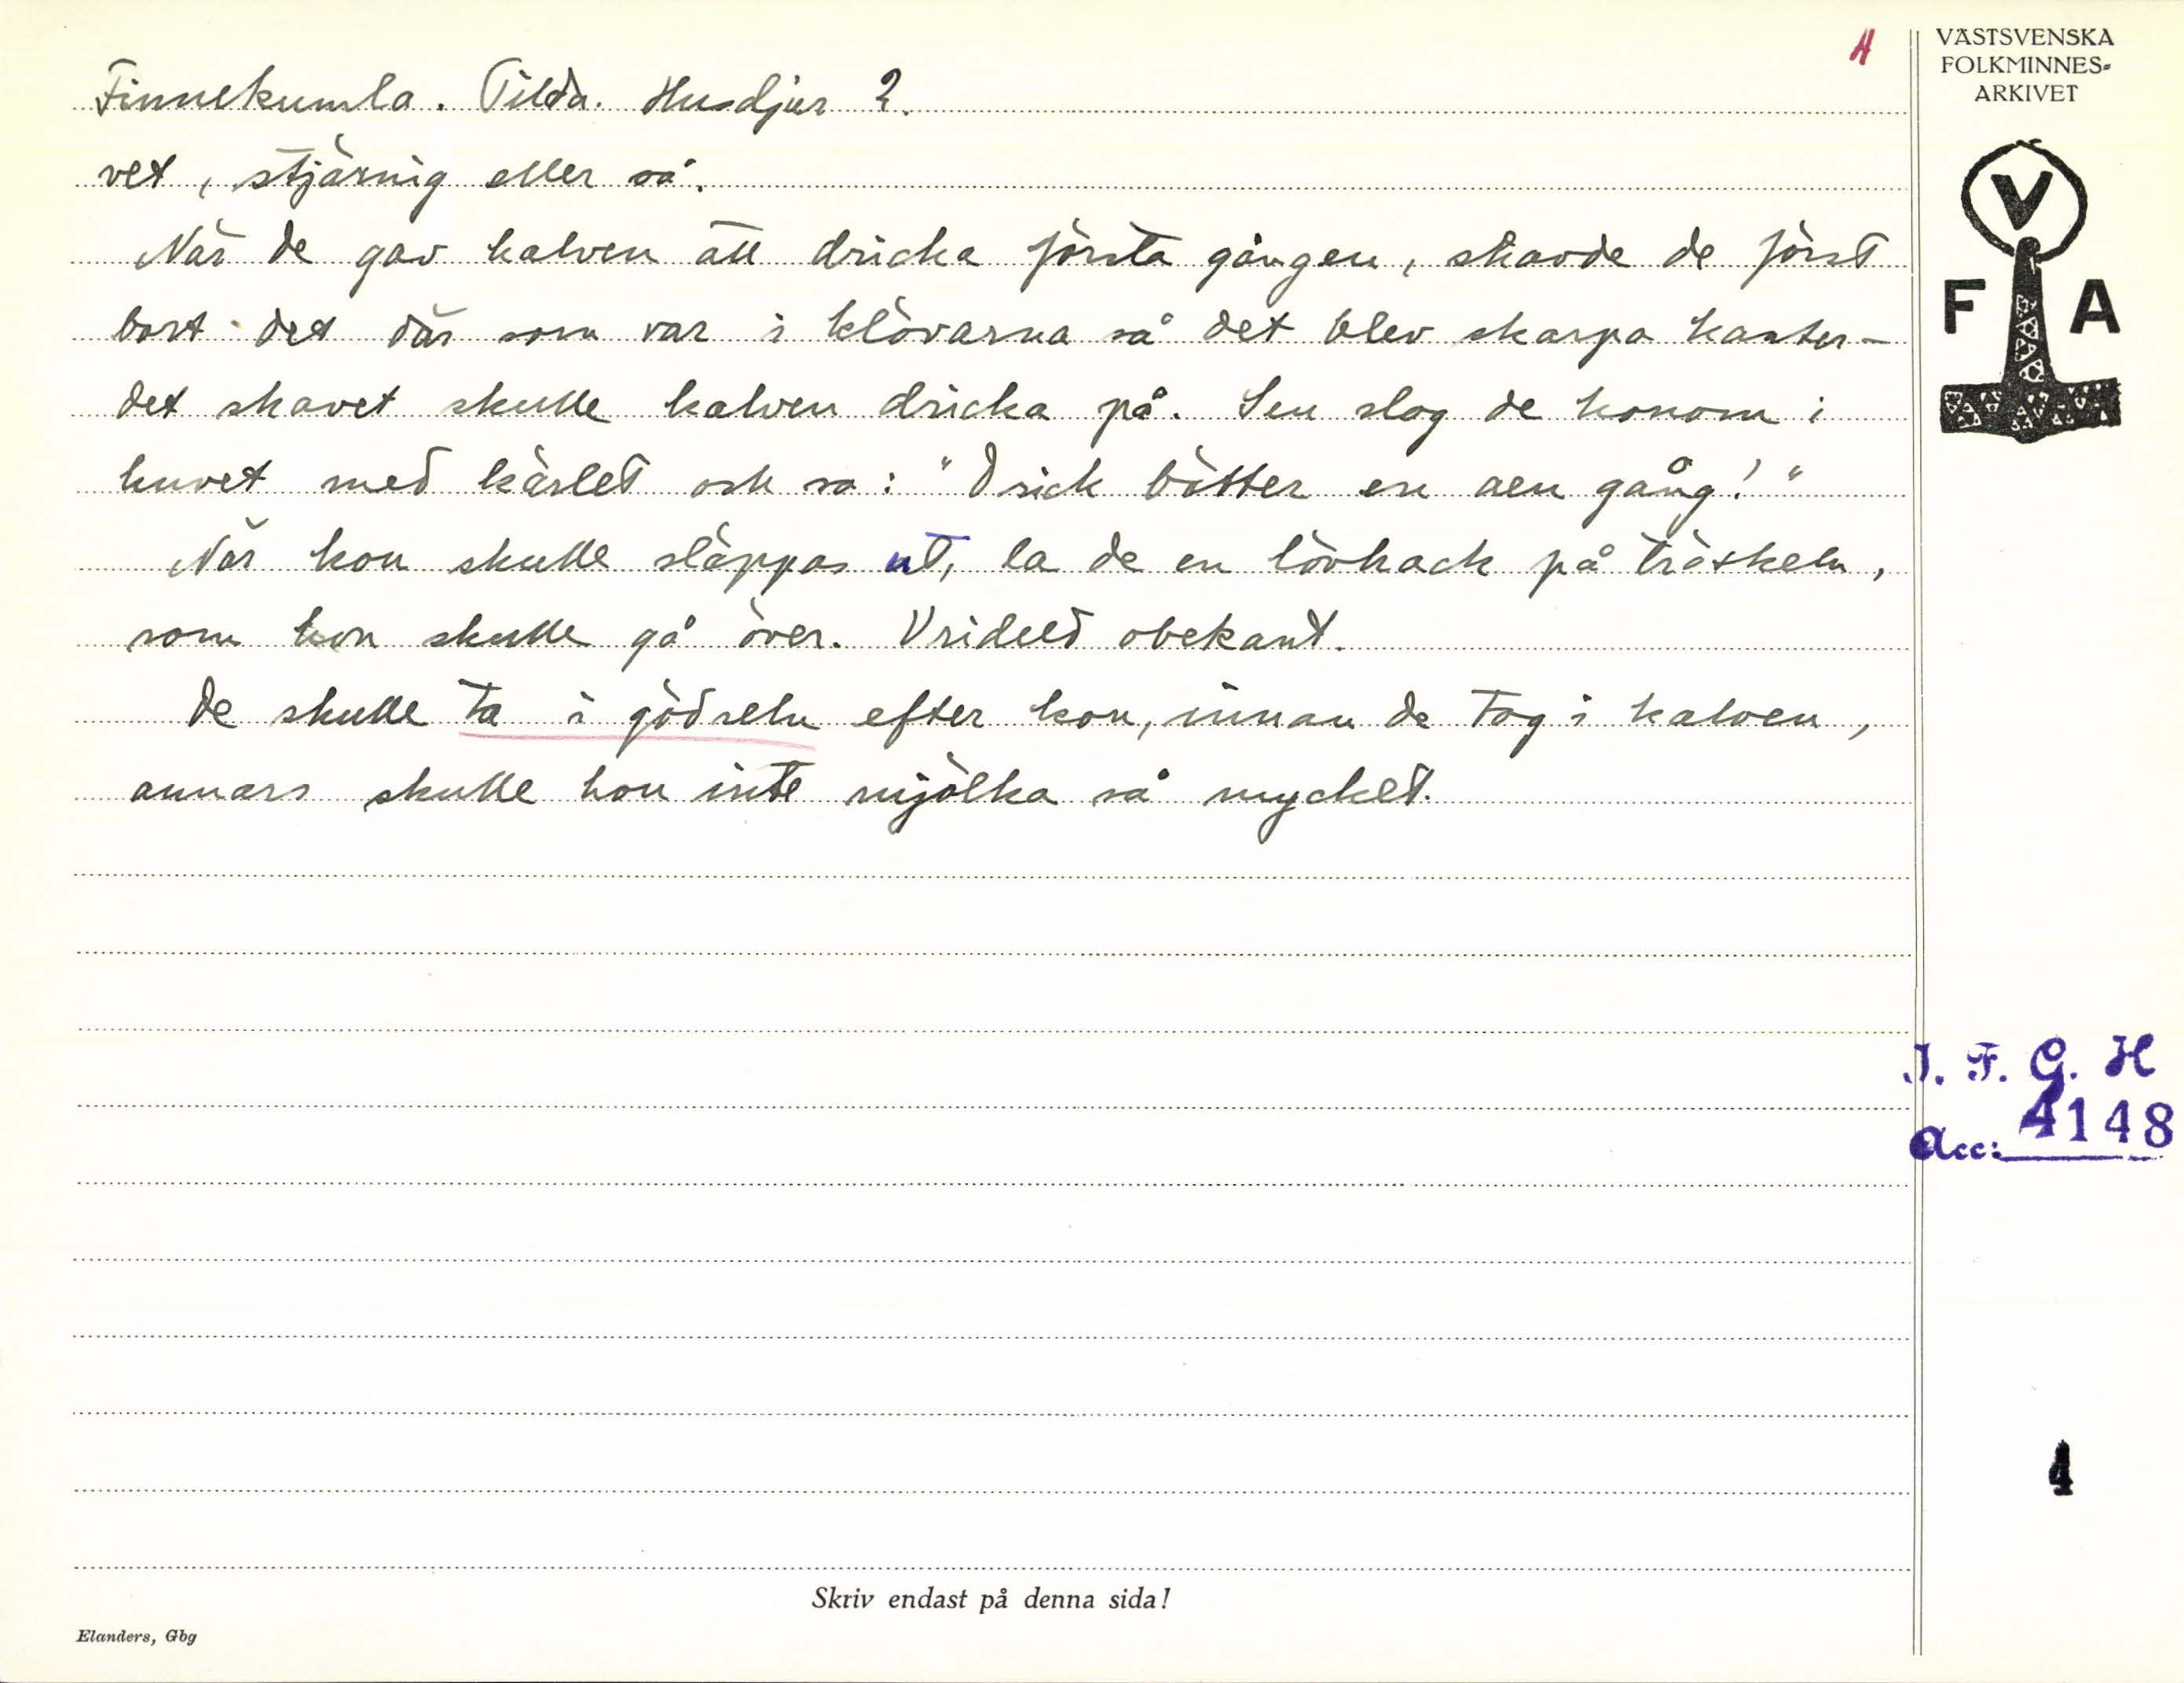 Finnekumla. Tilda. Husdjur 2.
vet, stjärnig eller så.
När de gav kalven att dricka första gången, skavde de först
bort det där som var i klövarna så det blev skarpa kanter –
det skavet skulle kalven dricka på. Sen slog de honom i
huvet med kärlet och sa: "Drick bätter en aen gång!"
När kon skulle släppas ut, la de en lövhack på tröskeln,
som kon skulle gå över. Vrideld obekant.
De skulle ta i gödseln efter kon, innan de tog i kalven,
annars skulle hon inte mjölka så mycket.
VÄSTSVENSKA
FOLKMINNES-
ARKIVET
V
F A
I. F. G. H
Acc: 4148
4
Skriv endast på denna sida!
Elanders, Gbg